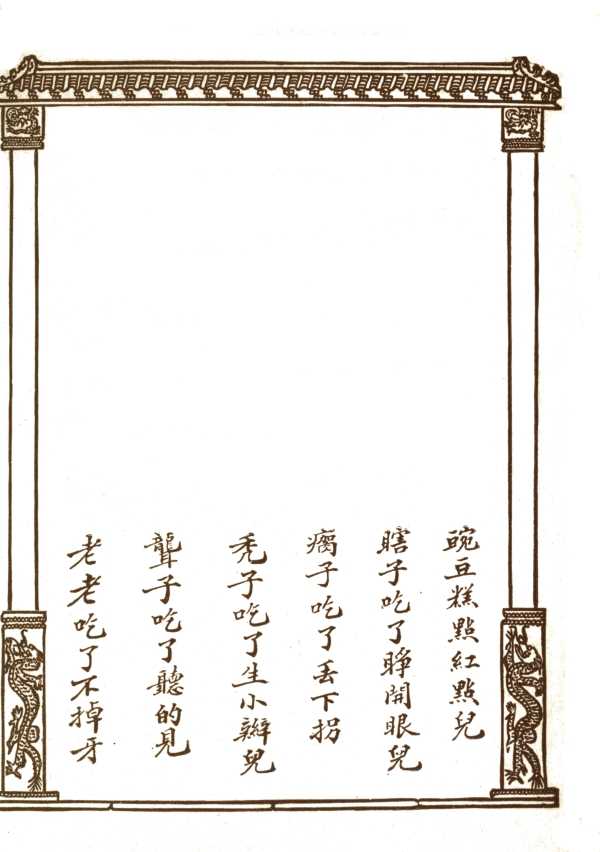 豌豆糕點紅點兒
瞎子吃了睜開眼兒
瘸子吃了丟下拐
禿子吃了生小辮兒
聾子吃了聽的見
老老吃了不掉牙